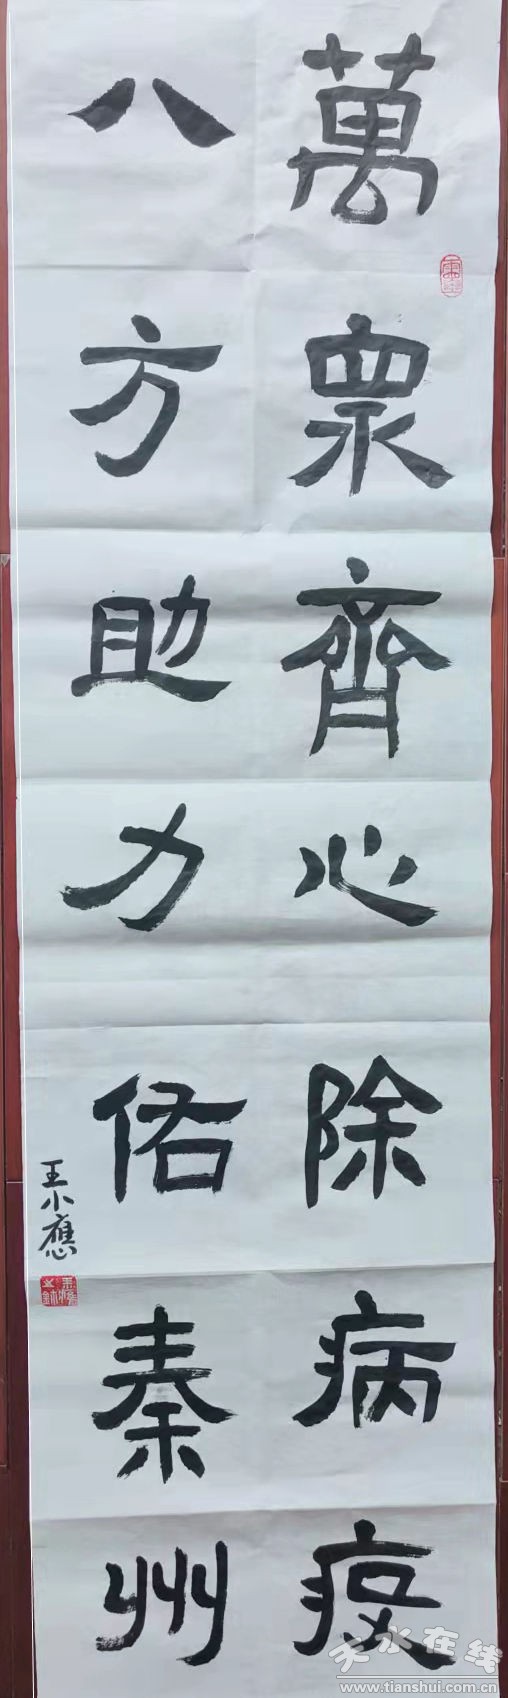 萬眾齊心除病疫
八方助力佑秦州
王小應
天水在线
www.tianshui.com.cn